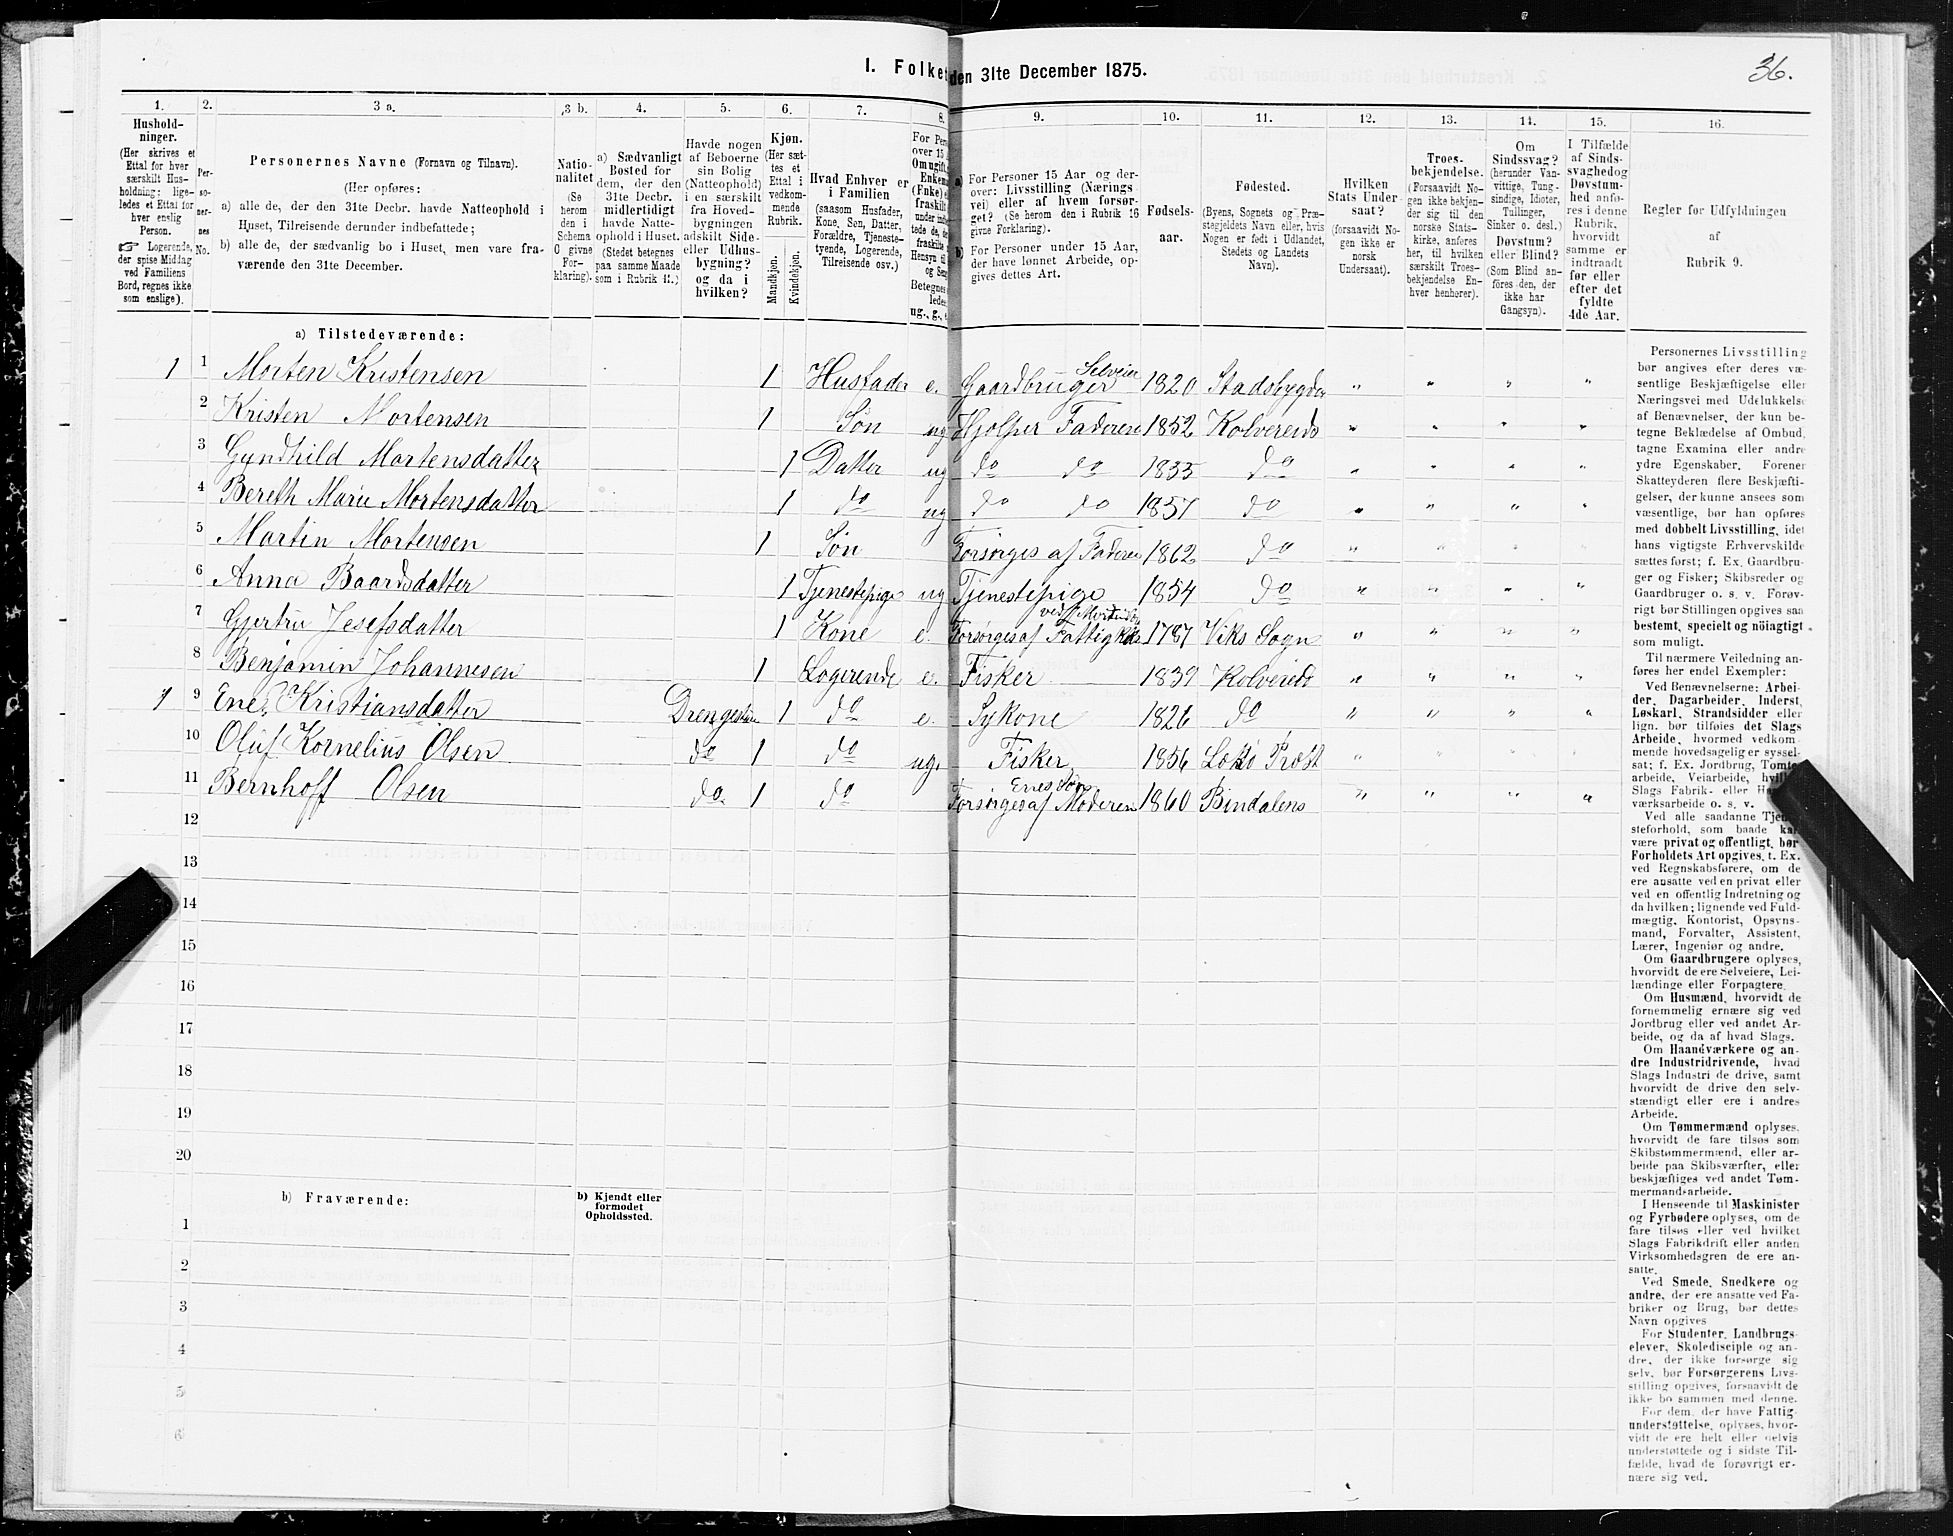 36.
I. Folket den 31te December 1875.
1. 2. 3 a. 3 b. 4. 5. 6. 7. 8. 9. 10. 11. 12. 13. 14. 15. 16.
Hushold-
ninger.
(Her skrives et
Ettal for hver
særskilt Hus-
holdning; lige-
ledes et Ettal for
hver enslig
Person.
☞ Logerende,
der spise Middag
ved Familiens
Bord, regnes ikke
som enslige).
Per-
so-
ner-
nes
No.
Personernes Navne (Fornavn og Tilnavn).
(Her opføres:
a) alle de, der den 31te Decbr. havde Natteophold i
Huset, Tilreisende derunder indbefattede;
b) alle de, der sædvanlig bo i Huset, men vare fra-
værende den 31te December.
Natio-
nalitet
(Se
herom
den i
Schema
O givne
For-
klaring).
a) Sædvanligt
Bosted for
dem, der den
31te Decbr.
midlertidigt
havde Natte-
ophold i Huset.
(Stedet betegnes
paa samme Maade
som i Rubrik 11.)
Havde nogen
af Beboerne
sin Bolig
(Natteophold)
i en særskilt
fra Hoved-
bygningen
adskilt Side-
eller Udhus-
bygning?
og da i
hvilken?
Kjøn.
(Her sæt-
tes et
Ettal i
vedkom-
mende
Rubrik.
Mandkjøn.
Kvindekjøn.
Hvad Enhver er
i Familien
(saasom Husfader,
Kone, Søn, Datter,
Forældre, Tjeneste-
tyende, Logerende,
Tilreisende osv.)
For Pers
over 15
Om ugift,
Enkema
(Fnke) e
fraskilt
a) For Personer 15 Aar og der-
over: Livsstilling (Nærings-
vei) eller af hvem forsør-
get? (Se herom den i Rubrik 16
givne Forklaring).
b) For Personer under 15 Aar,
der have lønnet Arbeide, op-
gives dettes Art.
Fødsels-
aar.
Fødested.
(Byens, Sognets og Præ-
stegjeldets Navn eller, hvis
Nogen er født i Udlandet,
Stedets og Landets
Navn).
Hvilken
Stats Under-
saat?
(forsaavidt No-
gen ikke er
norsk
Undersaat).
Troes-
bekjendelse.
(Forsaavidt No-
gen ikke bekjen-
der sig til den
norske Stats-
kirke, anføres
her, til hvilken
særskilt Troes-
bekjendelse En-
hver henhører).
Om
Sindssvag?
(herunder Van-
vittige, Tung-
sindige, Idioter,
Tullinger,
Sinker o. desl.)
Døvstum?
eller Blind?
(Som Blind an-
føres den, der
ikke har
Gangsyn).
I Tilfælde
af Sinds-
svaghed og
Døvstum-
hed anfø-
res i denne
Rubrik,
hvorvidt
samme er
indtraadt
før eller
efter det
fyldte
4de Aar.
Regler for Udfyldningen
af
Rubrik 9.
a) Tilstedeværende:
1 1 Morten Kristensen 1 Husfader e. Gaardbruger Selveier 1820 Stadsbygden " " " "
2 Kristen Mortensen 1 Søn ug Hjelper Faderen 1852 Kolvereids " " " "
3 Gundhild Mortensdatter 1 Datter ug do do 1855 do " " " "
4 Bereth Marie Mortensdatter 1 do ug do do 1857 do " " " "
5 Martin Mortensen 1 Søn Forsørges af Faderen 1862 do " " " "
6 Anna Baardsdatter 1 Tjenestepige ug Tjenestepige 1854 do " " " "
7 Gjertru Josefsdatter 1 Kone e. Forsørges af Fattigkas 1787 Viks Sogn " " " "
8 Benjamin Johannesen 1 Logerende e. Fisker 1839 Kolvereid " " " "
1 9 Enes Kristiansdatter 1 do e. Sykone 1826 do " " " "
10 Oluf Kornelius Olsen do 1 do ug. Fisker 1856 Lekø Præst " " " "
11 Bernhoff Olsen do. 1 do Forsørges af Moderen Enes Søn 1860 Bindalens " " " "
12
13
14
15
16
17
18
19
20
b) Fraværende:
b) Kjendt eller
formodet
Opholdssted.
1
2
3
4
5
6
Personernes Livsstilling
bør angives efter deres væ-
sentlige Beskjæftigelse eller
Næringsvei med Udelukkelse
af Benævnelser, der kun be-
tegne Beklædelse af Ombud,
tagne Examina eller andre
ydre Egenskaber. Forener
Skatteyderen flere Beskjæfti-
gelser, der kunne ansees som
væsentlige, bør han opføres
med dobbelt Livsstilling, idet
hans vigtigste Erhvervskilde
sættes først; f. Ex. Gaardbru-
ger og Fisker; Skibsreder og
Gaardbruger o. s. v. Forøv-
rigt bør Stillingen opgives saa
bestemt, specielt og nöiagtigt
som muligt.
Til nærmere Veiledning an-
føres her endel Exempler:
Ved Benævnelserne: Arbei-
der, Dagarbeider, Inderst,
Løskarl, Strandsidder eller
lign. bør tilføies det Slags
Arbeide, hvormed vedkom-
mende hovedsagelig er syssel-
sat; f. Ex. Jordbrug, Tomte-
arbeide, Veiarbeide,
Slags Fabrik- eller
værksarbeide o. s. v.
Ved alle saadanne Tjene-
steforhold, som baade kan
være privat og offentligt, bør
Forholdets Art opgives, t. Ex.
ved Regnskabsførere, om de
ere ansatte ved en privat eller
ved en offentlig Indretning og
da hvilken; lignende ved Fuld-
mægtig, Kontorist, Opsyns-
mand, Forvalter, Assistent,
Lærer, Ingeniør og andre.
Om Gaardbrugere oplyses,
hvorvidt de ere Selveiere, Lei-
lændinge eller Forpagtere.
Om Husmænd, hvorvidt de
fornemmelig ernære sig ved
Jordbrug eller ved andet Ar-
beide, og da af hvad Slags.
Om Haandværkere og an-
dre Industridrivende, hvad
Slags Industri de drive, samt
hvorvidt de drive den selv-
stændigt eller ere i andres
Arbeide.
Om Tømmermænd oplyses,
hvorvidt de fare tilsøs som
Skibstømmermænd, eller ar-
beide paa Skibsværfter, eller
beskjæftiges ved andet Tøm-
mermandsarbeide.
I Henseende til Maskinister
og Fyrbødere oplyses, om de
fare tilsøs eller ved hvilket
Slags Fabrikdrift eller anden
Virksomhedsgren de ere an-
satte.
Ved Smede, Snedkere og
andre, der ere ansatte ved Fa-
briker og Brug, bør dettes
Navn opgives
For Studenter, Landbrugs-
elever, Skoledisciple og an-
dre, der ikke forsørge sig
selv, bør Forsørgerens Livs-
stilling opgives, forsaavidt de
ikke bo sammen med denne.
For dem, der have Fattig-
understøttelse, oplyses, hvor-
vidt de ere helt eller delvis
understøttede og i sidste Til-
fælde, hvad de forøvrigt er-
nære sig ved.